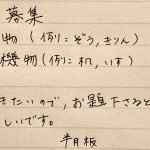 募集
物(例:ぞう,きりん)
機物(例:机,いす)
きたいので,お題下さると
しいです。
半月板